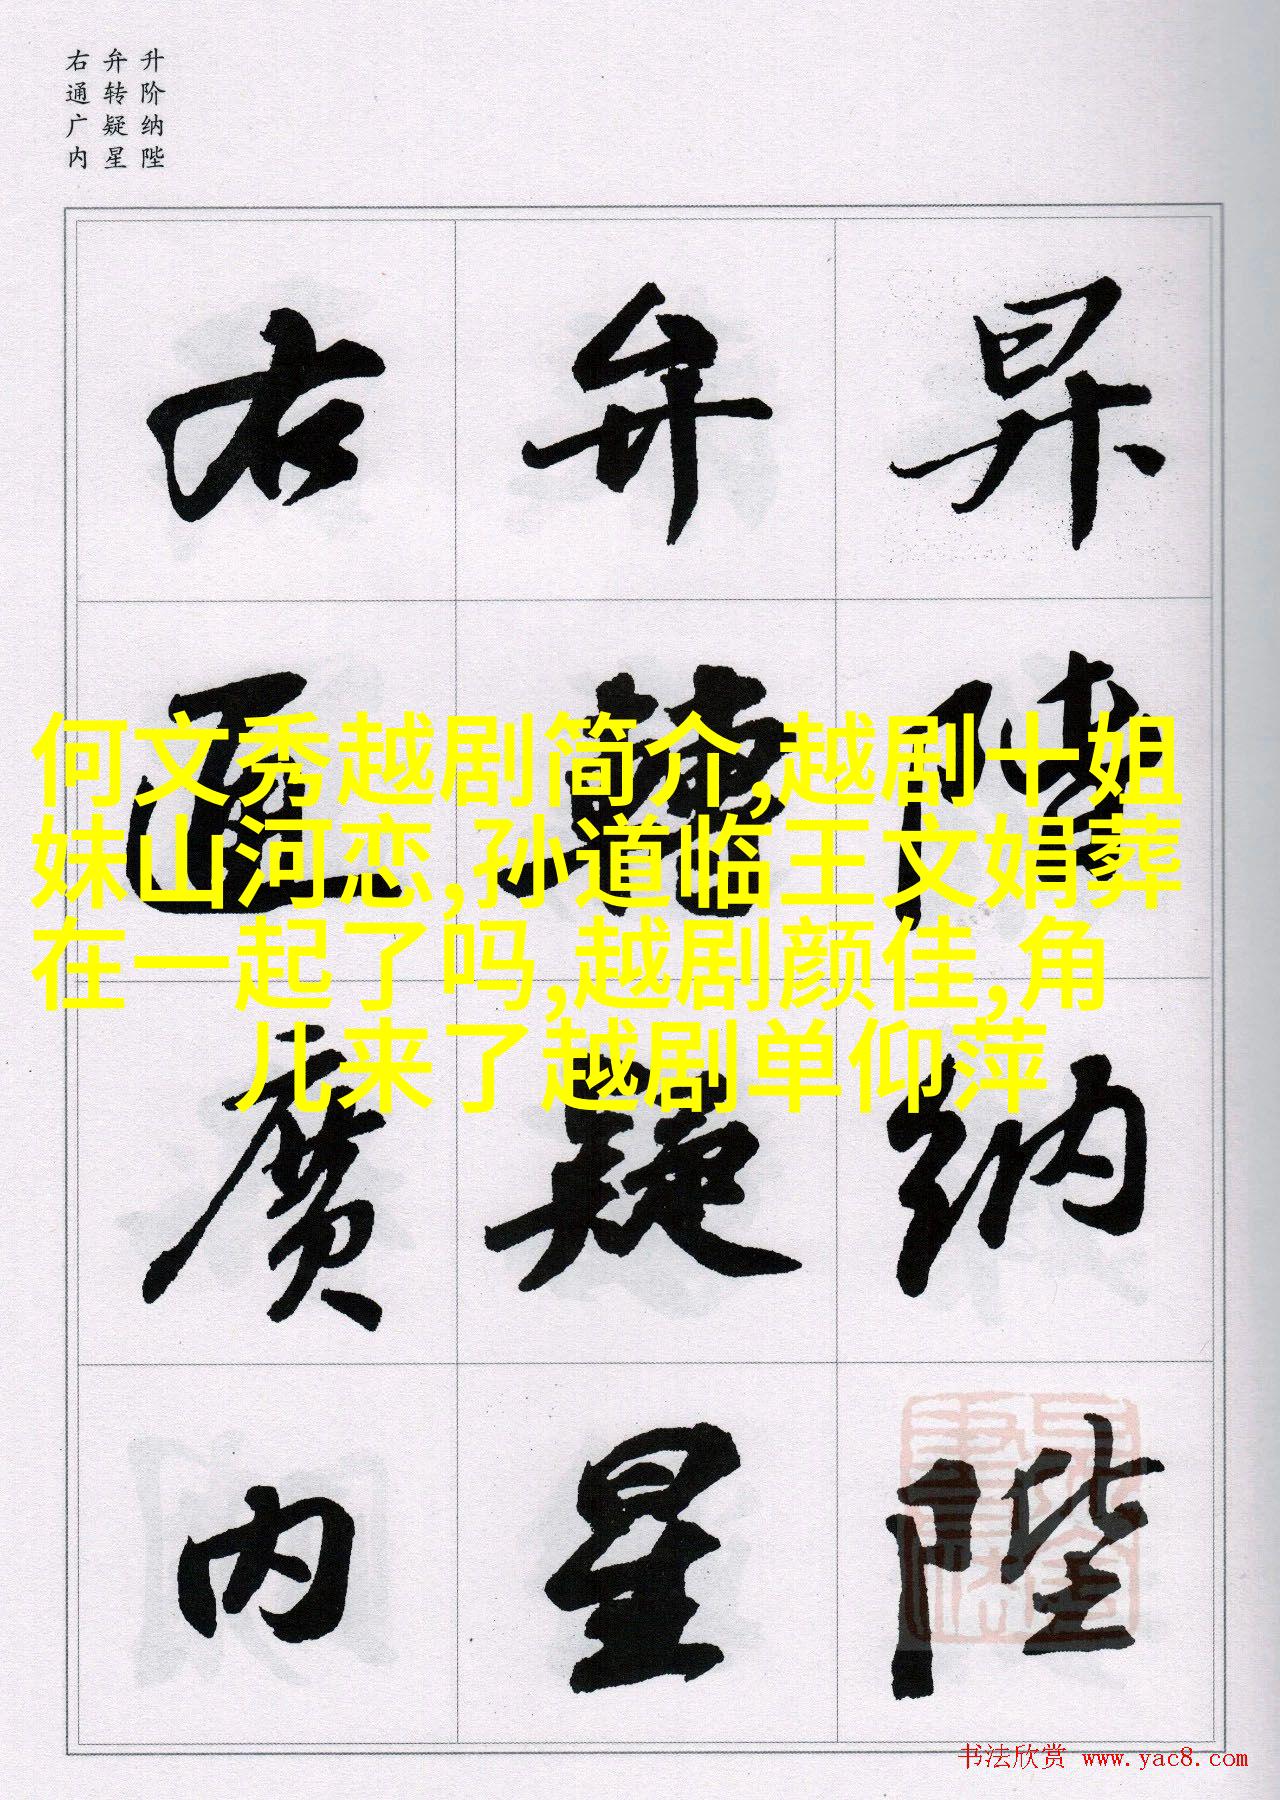 升阶纳陛
弁转疑星
右通广内
昇階納陛
弁轉疑星
右通廣內
何文秀越剧简介,越剧十姐
妹山河恋,孙道临王文娟葬
在一起了吗,越剧颜佳,角
儿来了越剧单仰萍
书法欣赏 www.yac8.com